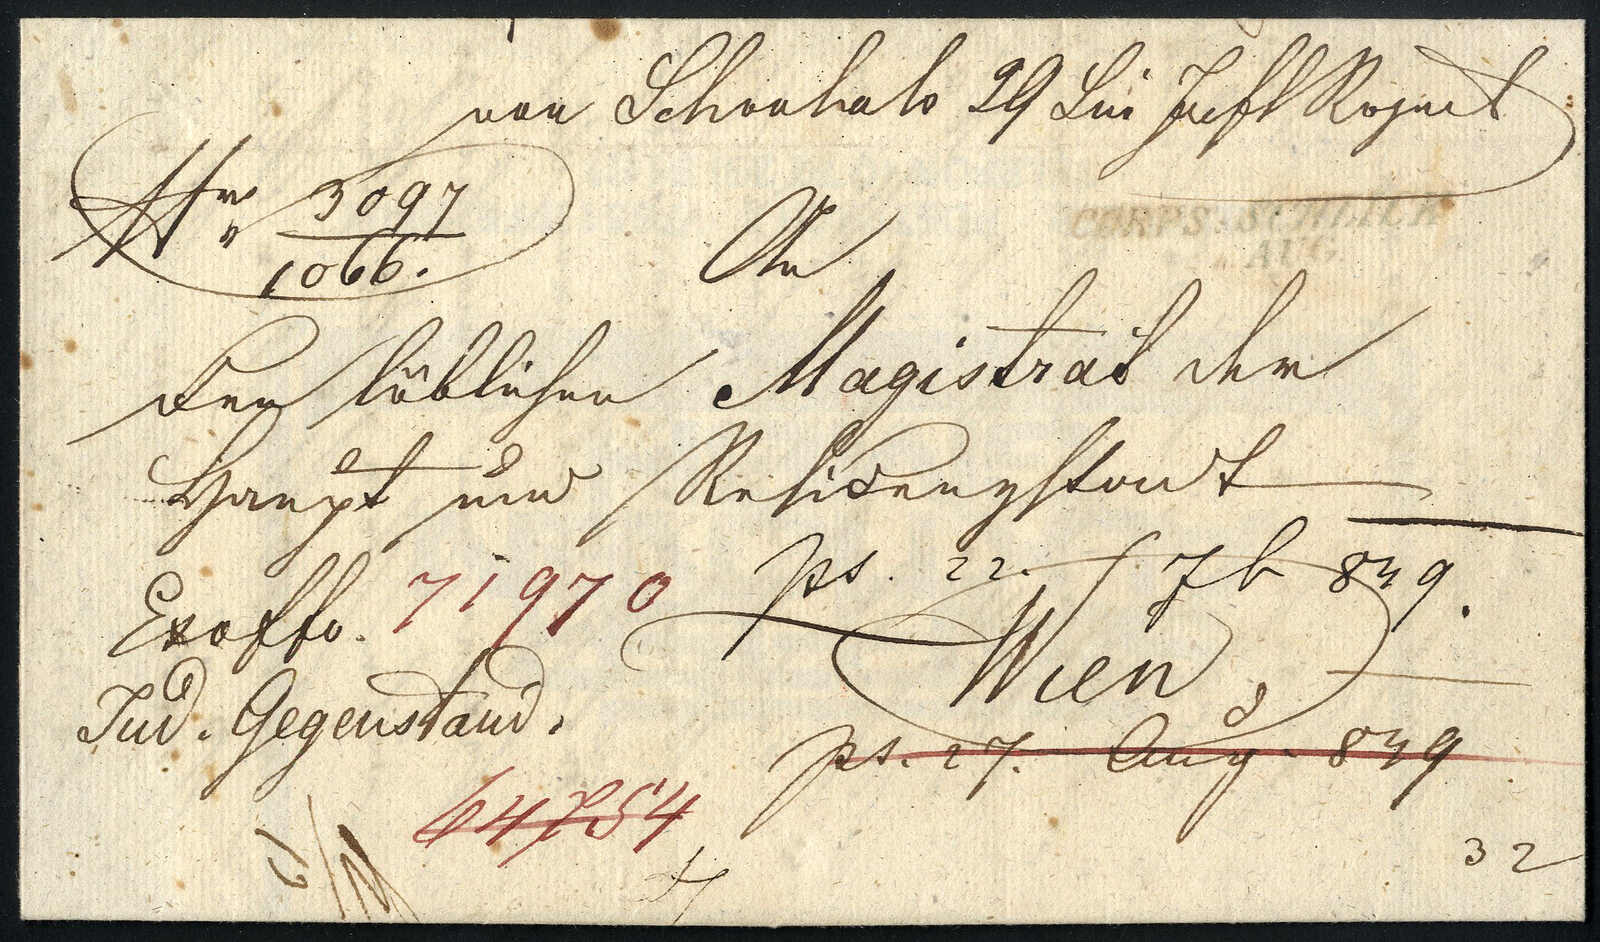 von Schönhals 29 Lin Inft Regmt
Nr 3097
1066.
An
CORPS-SCHLICK
AUG
den löblichen Magistrat der
Haupt und Residenzstadt
ps. 22. 7b 849.
Exoffo. 71970
Wien
Jud. Gegenstand.
ps. 27. Aug 849
64754
32